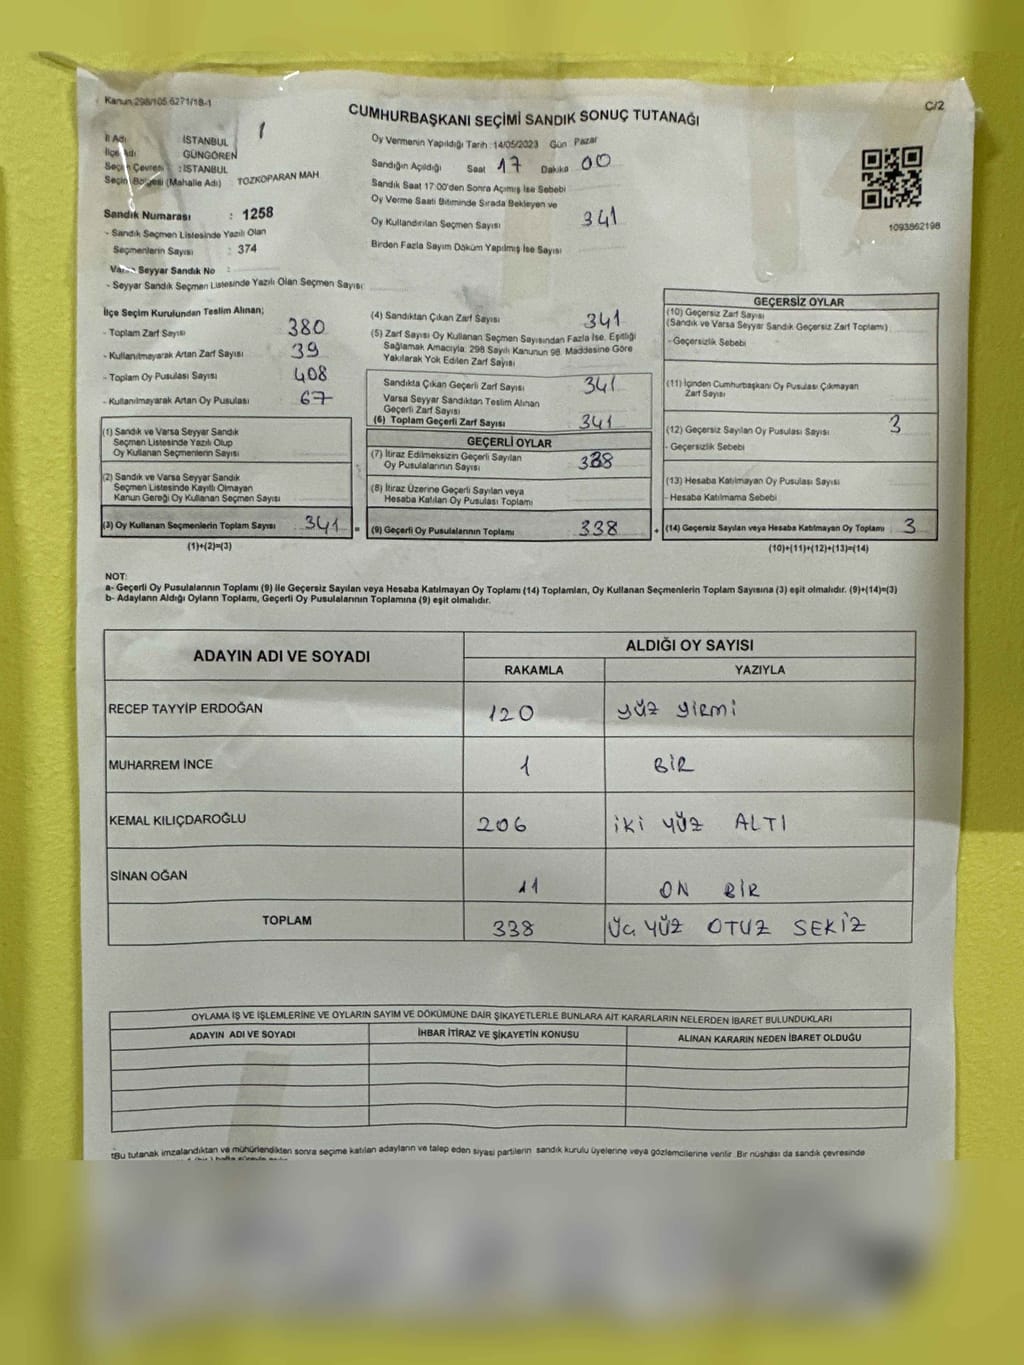 Kanun 298/105 6271/18-1
C/2
CUMHURBAŞKANI SEÇİMİ SANDIK SONUÇ TUTANAĞI
1
İl Adı İSTANBUL
İlçe Adı GÜNGÖREN
Seçim Çevresi : İSTANBUL
Seçim Bölgesi (Mahalle Adı) TOZKOPARAN MAH.
Sandık Numarası : 1258
- Sandık Seçmen Listesinde Yazılı Olan
Seçmenlerin Sayısı : 374
Varsa Seyyar Sandık No :
- Seyyar Sandık Seçmen Listesinde Yazılı Olan Seçmen Sayısı
Oy Vermenin Yapıldığı Tarih : 14/05/2023 Gün Pazar
Sandığın Açıldığı Saat 17 Dakika 00
Sandık Saat 17:00'den Sonra Açılmış İse Sebebi
Oy Verme Saati Bitiminde Sırada Bekleyen ve
Oy Kullandırılan Seçmen Sayısı 341
Birden Fazla Sayım Döküm Yapılmış İse Sayısı
1093862198
İlçe Seçim Kurulundan Teslim Alınan;
- Toplam Zarf Sayısı 380
- Kullanılmayarak Artan Zarf Sayısı 39
- Toplam Oy Pusulası Sayısı 408
- Kullanılmayarak Artan Oy Pusulası 67
(1) Sandık ve Varsa Seyyar Sandık
Seçmen Listesinde Yazılı Olup
Oy Kullanan Seçmenlerin Sayısı
(2) Sandık ve Varsa Seyyar Sandık
Seçmen Listesinde Kayıtlı Olmayan
Kanun Gereği Oy Kullanan Seçmen Sayısı
(3) Oy Kullanan Seçmenlerin Toplam Sayısı 341 =
(1)+(2)=(3)
(4) Sandıktan Çıkan Zarf Sayısı 341
(5) Zarf Sayısı Oy Kullanan Seçmen Sayısından Fazla İse, Eşitliği
Sağlamak Amacıyla, 298 Sayılı Kanunun 98. Maddesine Göre
Yakılarak Yok Edilen Zarf Sayısı
Sandıkta Çıkan Geçerli Zarf Sayısı 341
Varsa Seyyar Sandıktan Teslim Alınan
Geçerli Zarf Sayısı
(6) Toplam Geçerli Zarf Sayısı 341
GEÇERLİ OYLAR
(7) İtiraz Edilmeksizin Geçerli Sayılan
Oy Pusulalarının Sayısı 338
(8) İtiraz Üzerine Geçerli Sayılan veya
Hesaba Katılan Oy Pusulası Toplamı
(9) Geçerli Oy Pusulalarının Toplamı 338 +
GEÇERSİZ OYLAR
(10) Geçersiz Zarf Sayısı
(Sandık ve Varsa Seyyar Sandık Geçersiz Zarf Toplamı)
- Geçersizlik Sebebi
(11) İçinden Cumhurbaşkanı Oy Pusulası Çıkmayan
Zarf Sayısı
(12) Geçersiz Sayılan Oy Pusulası Sayısı 3
- Geçersizlik Sebebi
(13) Hesaba Katılmayan Oy Pusulası Sayısı
- Hesaba Katılmama Sebebi
(14) Geçersiz Sayılan veya Hesaba Katılmayan Oy Toplamı 3
(10)+(11)+(12)+(13)=(14)
NOT:
a- Geçerli Oy Pusulalarının Toplamı (9) ile Geçersiz Sayılan veya Hesaba Katılmayan Oy Toplamı (14) Toplamları, Oy Kullanan Seçmenlerin Toplam Sayısına (3) eşit olmalıdır. (9)+(14)=(3)
b- Adayların Aldığı Oyların Toplamı, Geçerli Oy Pusulalarının Toplamına (9) eşit olmalıdır.
ADAYIN ADI VE SOYADI ALDIĞI OY SAYISI
RAKAMLA YAZIYLA
RECEP TAYYİP ERDOĞAN 120 yüz yirmi
MUHARREM İNCE 1 BİR
KEMAL KILIÇDAROĞLU 206 iki yüz ALTI
SİNAN OĞAN 11 ON BİR
TOPLAM 338 Üç YÜZ OTUZ SEKİZ
OYLAMA İŞ VE İŞLEMLERİNE VE OYLARIN SAYIM VE DÖKÜMÜNE DAİR ŞİKAYETLERLE BUNLARA AİT KARARLARIN NELERDEN İBARET BULUNDUKLARI
ADAYIN ADI VE SOYADI İHBAR İTİRAZ VE ŞİKAYETİN KONUSU ALINAN KARARIN NEDEN İBARET OLDUĞU
*Bu tutanak imzalandıktan ve mühürlendikten sonra seçime katılan adayların ve talep eden siyasi partilerin sandık kurulu üyelerine veya gözlemcilerine verilir. Bir nüshası da sandık çevresinde